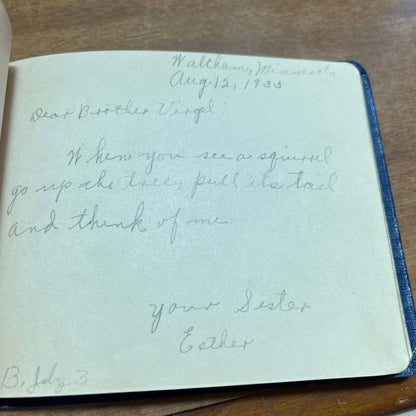 Waltham, Minnesota
Aug. 12, 1933
Dear Brother Virgel
When you see a squirrel
go up the tree, pull its tail
and think of me
your Sister
Esther
B. July 3